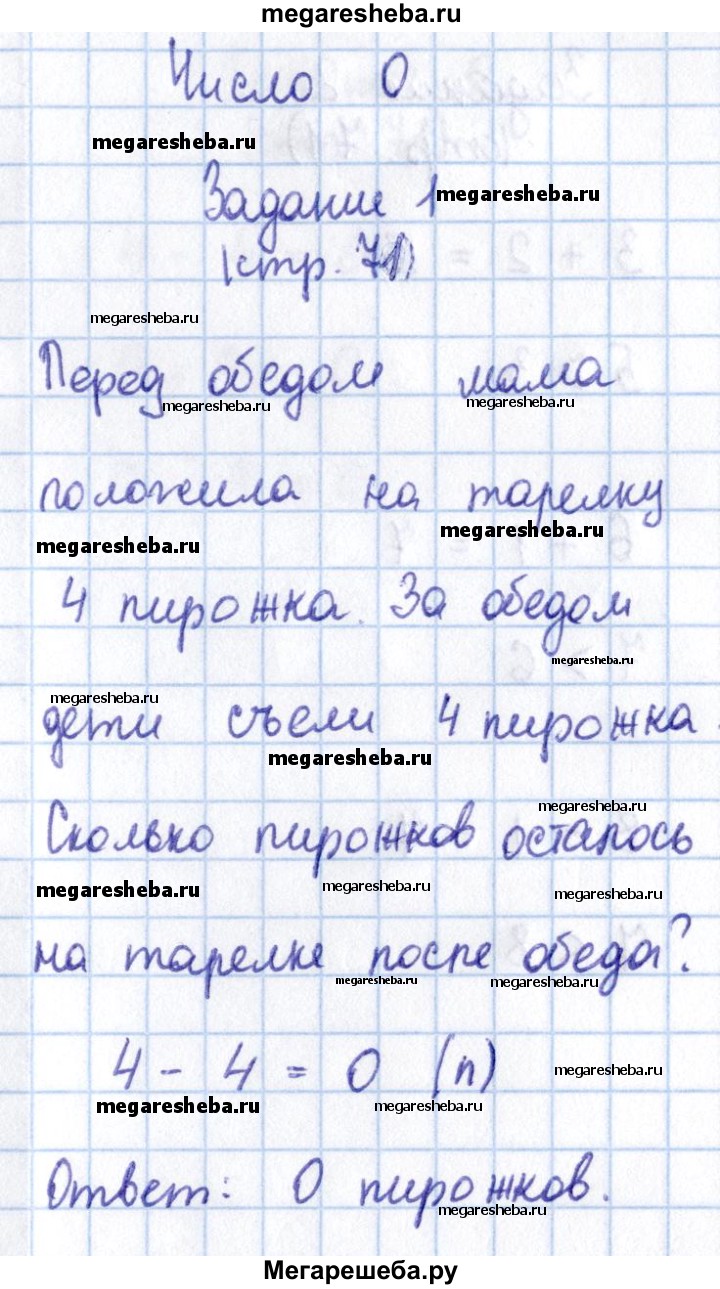 megaresheba.ru
Число 0
megaresheba.ru
Задание 1 megaresheba.ru
(стр. 71)
megaresheba.ru
Перед обедом мама
megaresheba.ru megaresheba.ru
положила на тарелку
megaresheba.ru megaresheba.ru
4 пирожка. За обедом
megaresheba.ru
megaresheba.ru
дети съели 4 пирожка.
megaresheba.ru
megaresheba.ru
Сколько пирожков осталось
megaresheba.ru megaresheba.ru megaresheba.ru
на тарелке после обеда?
megaresheba.ru megaresheba.ru
4 - 4 = 0 (п) megaresheba.ru
megaresheba.ru megaresheba.ru
Ответ: 0 пирожков.
megaresheba.ru
Мегарешеба.ру